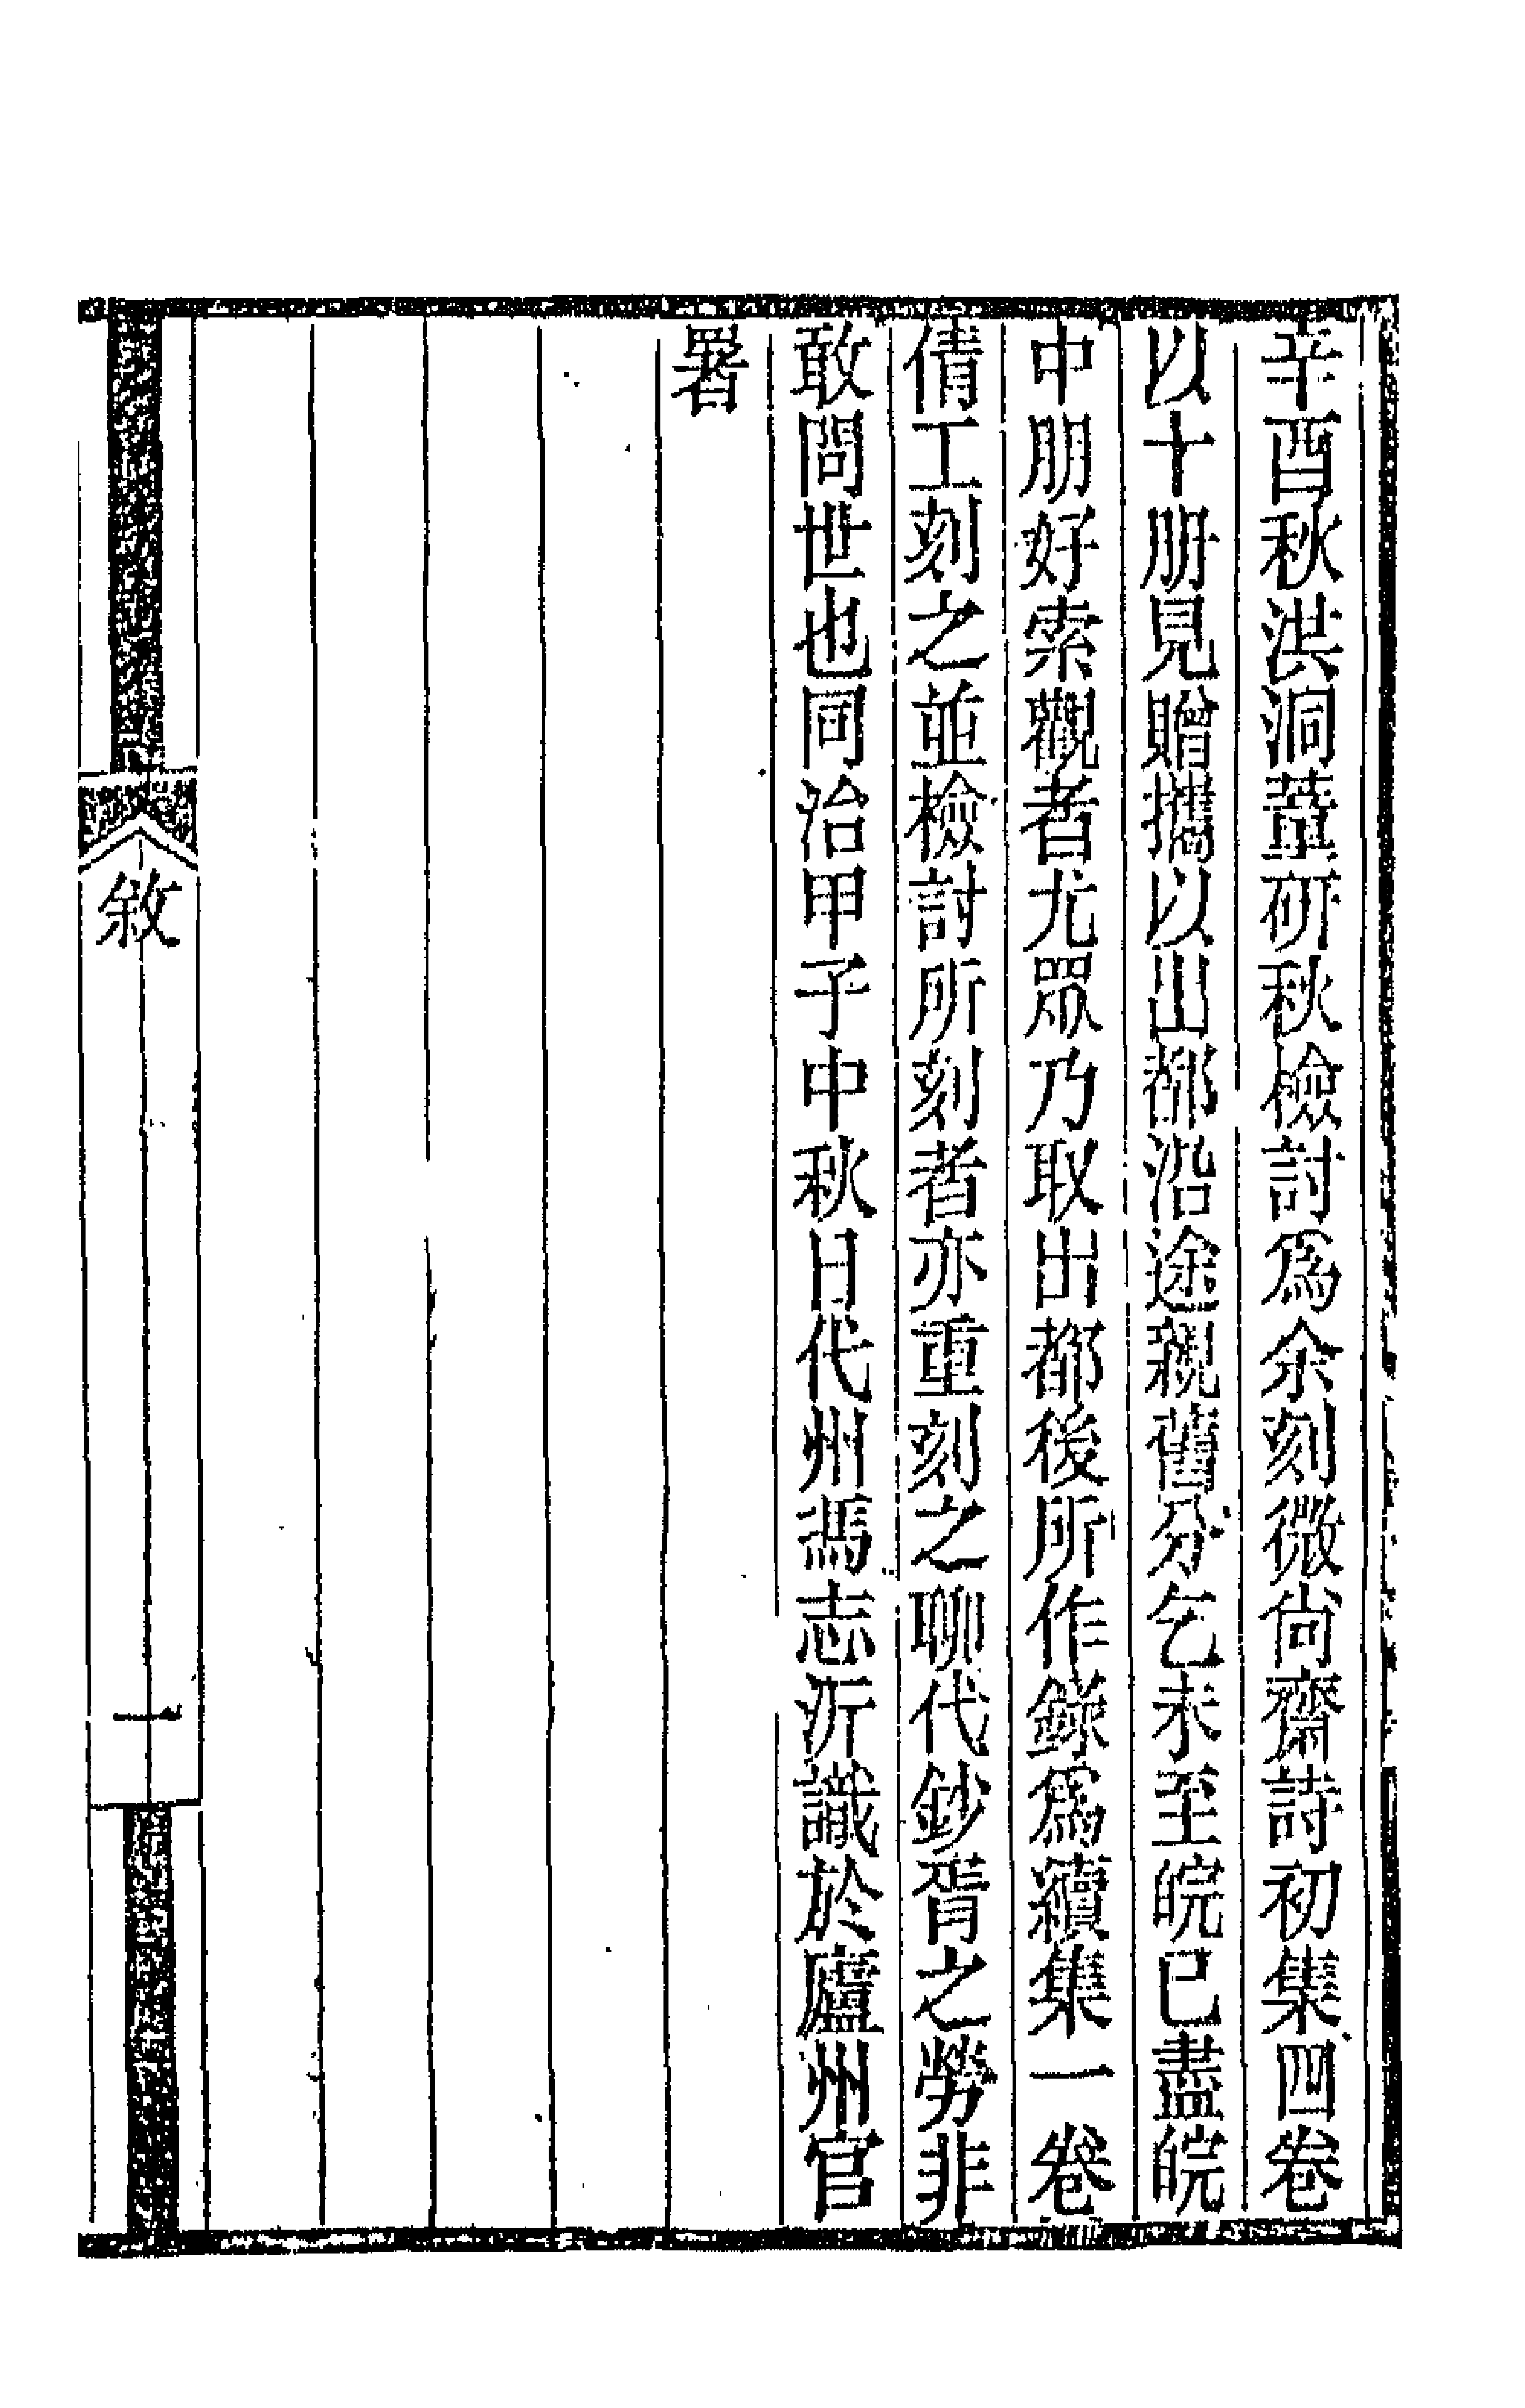 辛酉秋洪洞董硏秋檢討爲余刻微尙齋詩初集四卷
以十册見贈攜以出都沿途親舊分乞未至皖已盡皖
中朋好索觀者尤眾乃取出都後所作鐌爲續集一卷
倩工刻之並檢討所刻者亦重刻之聊代鈔胥之勞非
敢問世也同治甲子中秋日代州馮志沂識於廬州官
署
敘
一